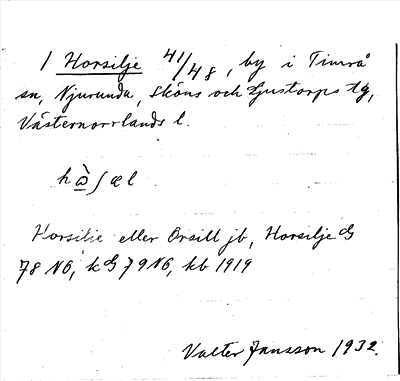 1 Horsilje 41/48, by i Timrå
sn, Njurunda, Sköns och Ljustorps tg,
Västernorrlands l.
hὼʃæl
Horsilie eller Orsill jb, Horsilje G
78 NO, k G 79 NO, kb 1919
Valter Jansson 1932.